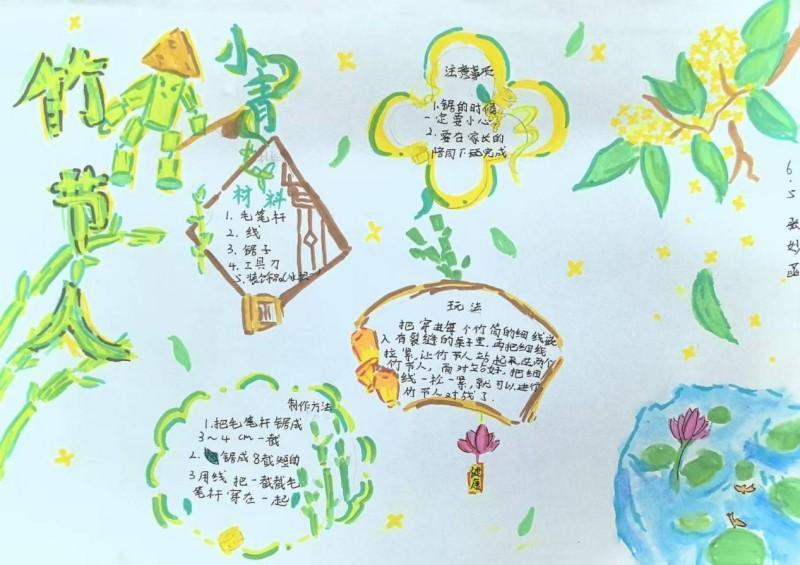 竹节人
小青
注意事项
1.锯的时候
一定要小心
2.要在家长的
陪同下完成
材料
1.毛笔杆
2.线
3.锯子
4.工具刀
5.装饰品
玩法
把穿过每个竹筒的细线嵌
入有裂缝的桌子里,再把细线
拉紧,让竹节人站起来
竹节人,面对 好,把细
线一拉一紧,就可以进行
竹节人对战了.
健康
制作方法
1.把毛笔杆锯成
3~4cm一截
2.锯成8截短的
3用线把一截截毛
笔杆穿在一起
6.5
妙函